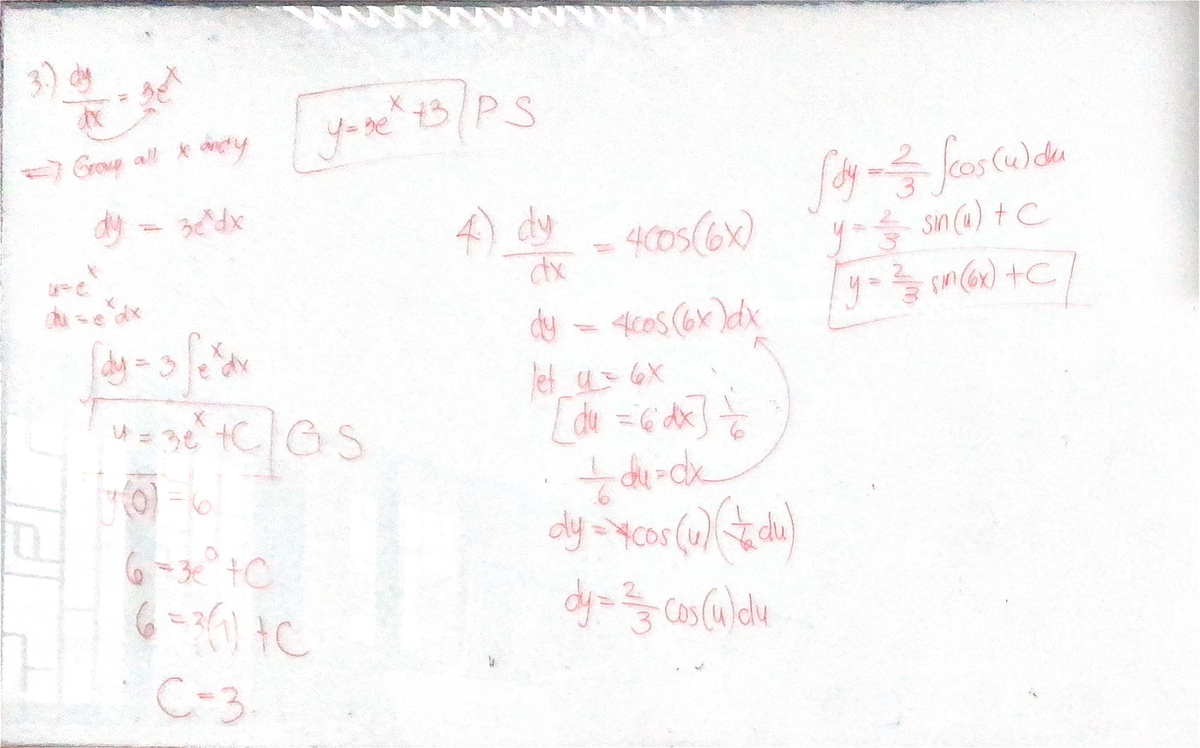 3.) dy/dx = 3e^x
=> Group all x and y
dy = 3e^x dx
u=e^x
du = e^x dx
∫dy = 3 ∫e^x dx
y = 3e^x + C GS
y(0) = 6
6 = 3e^0 + C
6 = 3(1) + C
C = 3
y = 3e^x + 3 PS
4.) dy/dx = 4cos(6x)
dy = 4cos(6x)dx
let u = 6x
[du = 6 dx] 1/6
1/6 du = dx
dy = 4cos(u)(1/6 du)
dy = 2/3 cos(u)du
∫dy = 2/3 ∫cos(u)du
y = 2/3 sin(u) + C
y = 2/3 sin(6x) + C